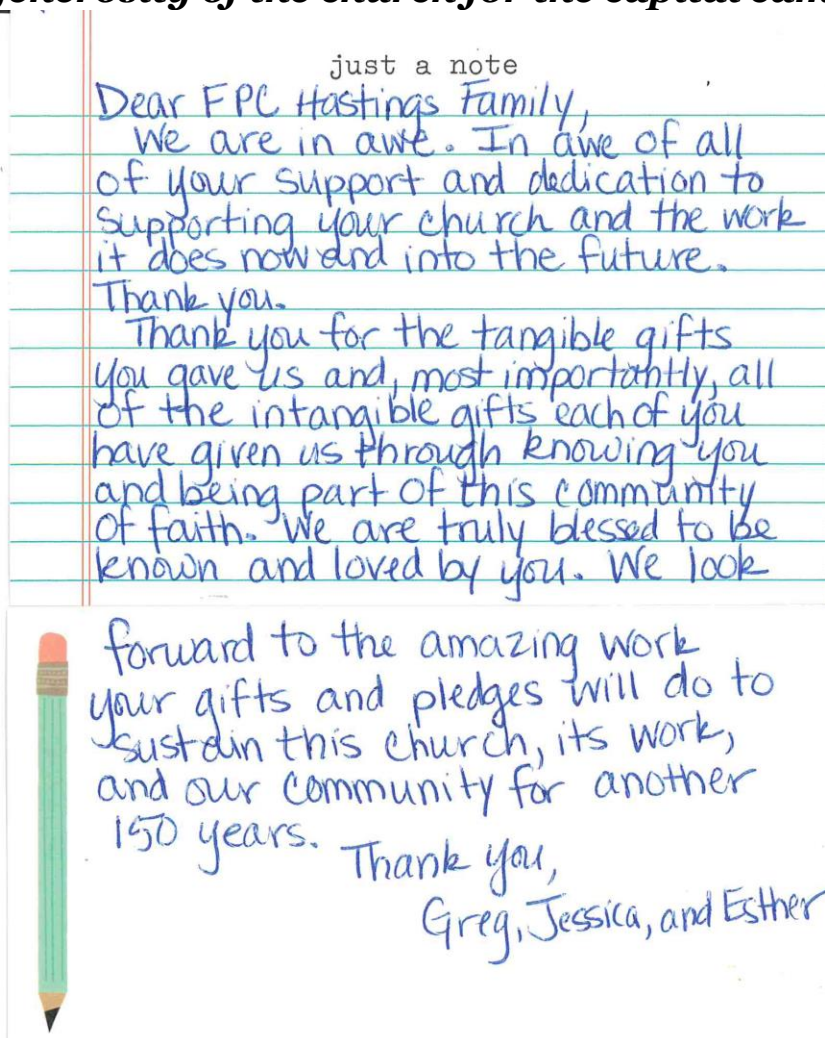 of the church for the capital
just a note
Dear FPC Hastings Family,
We are in awe. In awe of all
of your support and dedication to
supporting your church and the work
it does now and into the future.
Thank you.
Thank you for the tangible gifts
you gave us and, most importantly, all
of the intangible gifts each of you
have given us through knowing you
and being part of this community
of faith. We are truly blessed to be
known and loved by you. We look
forward to the amazing work
your gifts and pledges will do to
sustain this church, its work,
and our community for another
150 years.
Thank you,
Greg, Jessica, and Esther